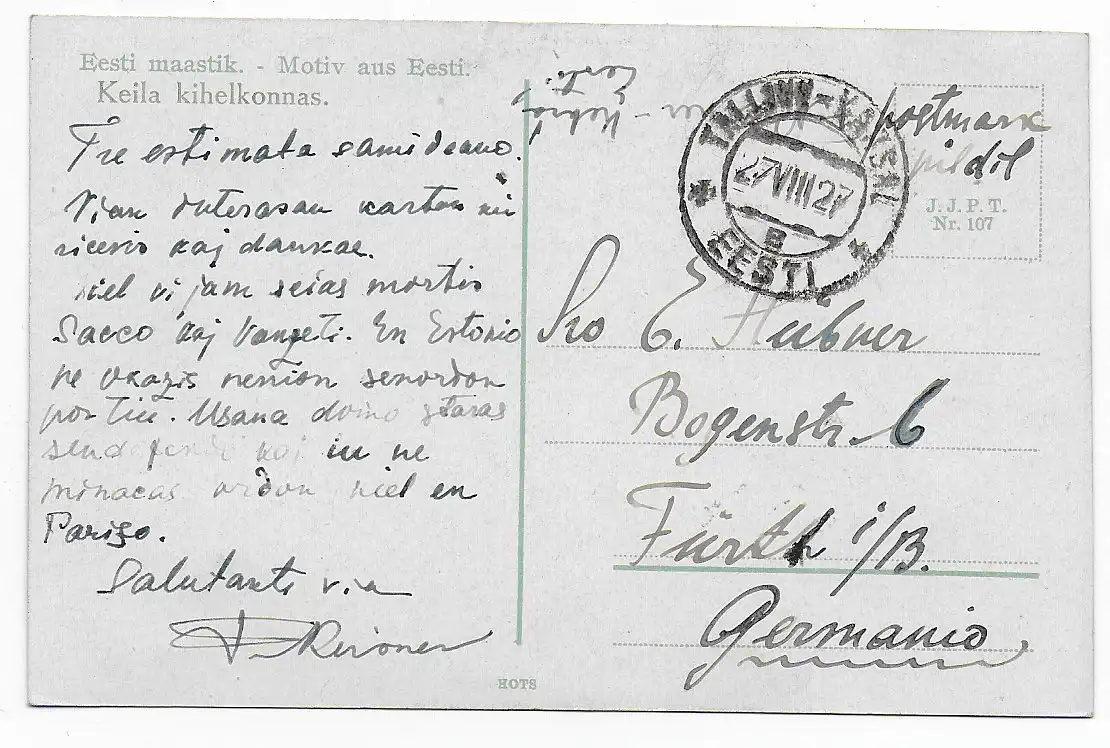 Eesti maastik. - Motiv aus Eesti.
Keila kihelkonnas.
Tre estimata samideano!
Vian interasan karton mi
ricevis kaj dankae.
kiel vi jam scias mortis
Sacco kaj Vanzeti. En Estonio
ne okazis nenion senordon
por tiu. Usana domo staras
sendefendi kaj iu ne
minacas ordon kiel en
Parizo.
Salutants via
TALLINN-HAAPSALU
27 VIII 27
B
EESTI
postmark
pildil
J. J. P. T.
Nr. 107
Sro E. Hübner
Bogenstr. 6
Fürth i/B.
Germanio
HOTS